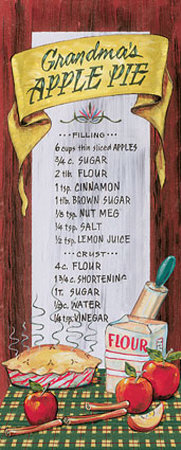 Grandma's
APPLE PIE
FILLING
6 cups thin sliced APPLES
3/4 c. SUGAR
2 tlb. FLOUR
1 tsp. CINNAMON
1 tlb. BROWN SUGAR
1/8 tsp. NUT MEG
1/4 tsp. SALT
1/2 tsp. LEMON JUICE
CRUST
4 c. FLOUR
1 3/4 c. SHORTENING
1 T. SUGAR
1/2 c. WATER
1/4 tsp. VINEGAR
FLOUR